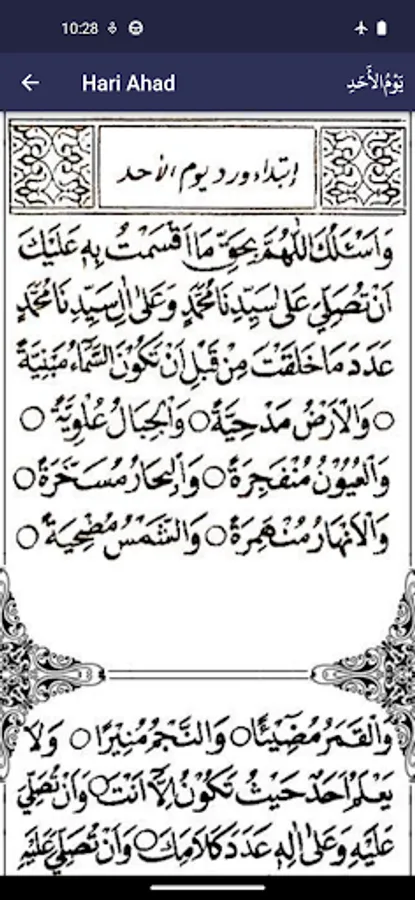 10:28
Hari Ahad
يَوْمُ الأَحَدِ
إبتداء ورد يوم الأحد
وَاَسْئَلُكَ اللّٰهُمَّ بِحَقِّ مَا اَقْسَمْتُ بِهٖ عَلَيْكَ
اَنْ تُصَلِّيَ عَلٰى سَيِّدِنَا مُحَمَّدٍ وَعَلٰى اٰلِ سَيِّدِنَا مُحَمَّدٍ
عَدَدَ مَا خَلَقْتَ مِنْ قَبْلِ اَنْ تَكُوْنَ السَّمَاءُ مَبْنِيَّةً
○ وَالْاَرْضُ مَدْحِيَّةً ○ وَالْجِبَالُ عُلْوِيَّةً ○
وَالْعُيُوْنُ مُنْفَجِرَةً ○ وَالْبِحَارُ مُسَخَّرَةً ○
وَالْاَنْهَارُ مُنْهَمِرَةً ○ وَالشَّمْسُ مُضْحِيَةً ○
وَالْقَمَرُ مُضِيْئًا ○ وَالنَّجْمُ مُنِيْرًا ○ وَلَا
يَعْلَمُ اَحَدٌ حَيْثُ تَكُوْنُ اِلَّا اَنْتَ ○ وَاَنْ تُصَلِّيَ
عَلَيْهِ وَعَلٰى اٰلِهٖ عَدَدَ كَلَامِكَ ○ وَاَنْ تُصَلِّيَ عَلَيْهِ